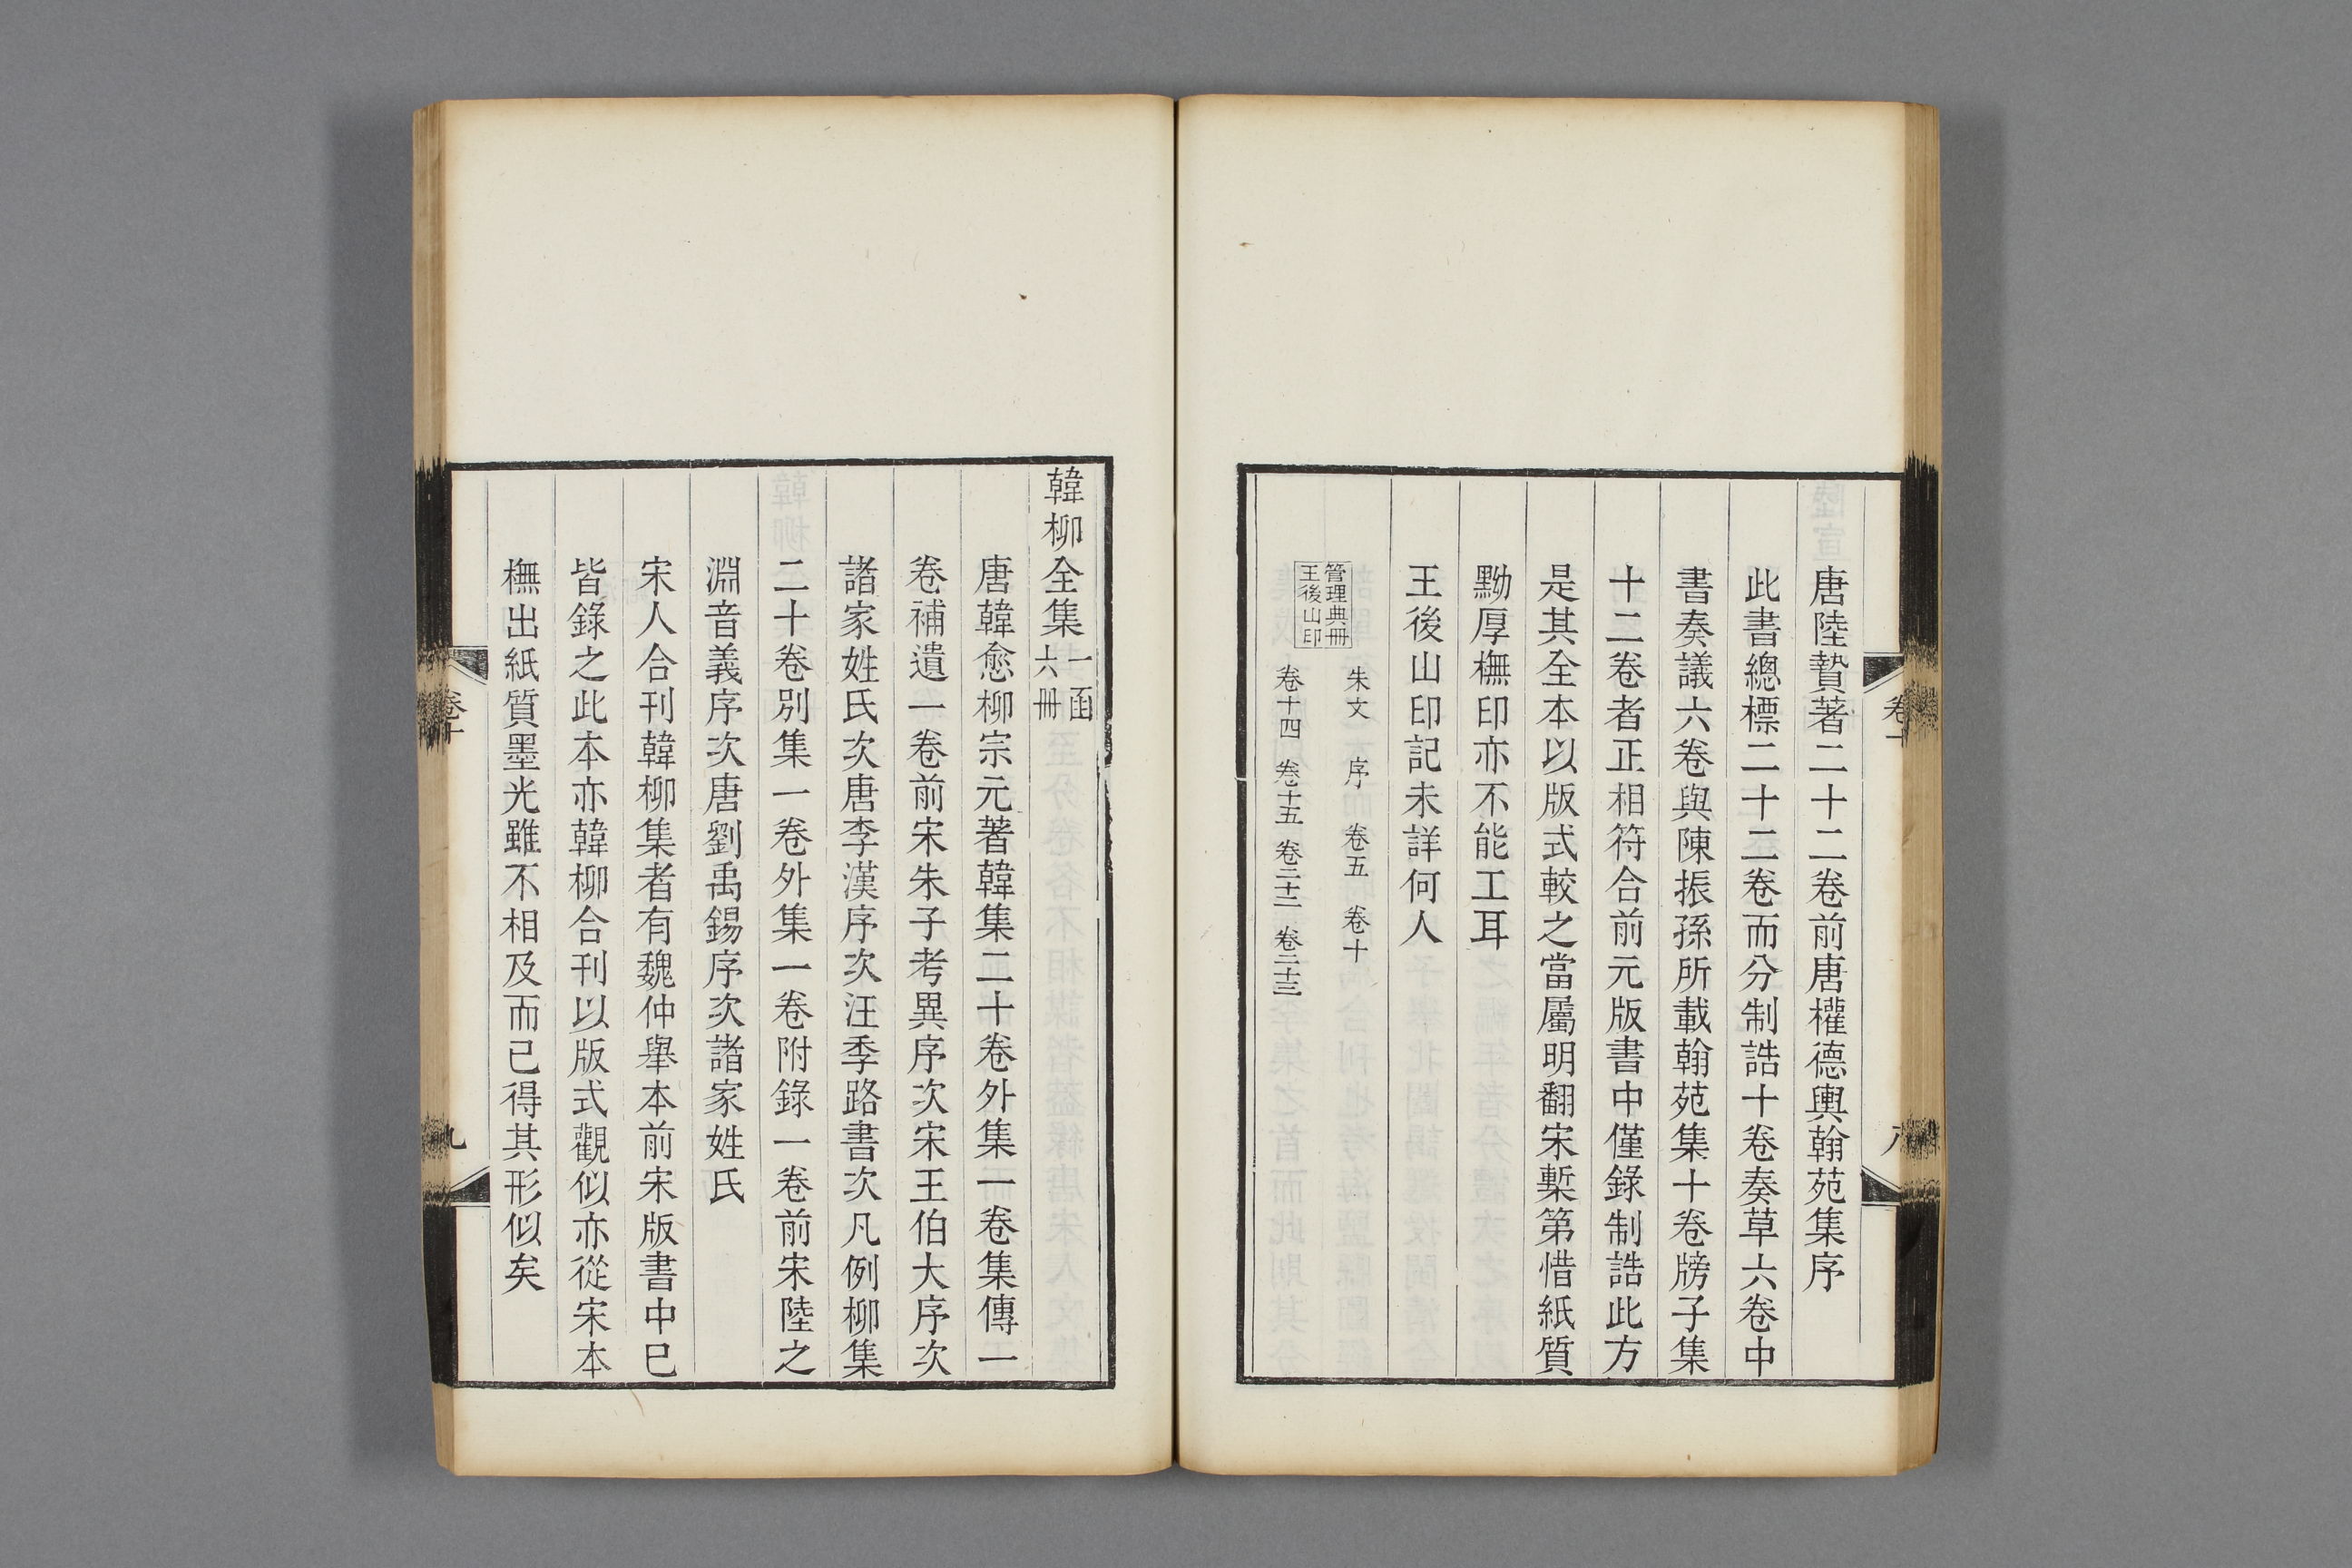 唐陸贄著二十二卷前唐權德輿翰苑集序
此書總標二十二卷而分制誥十卷奏草六卷中
書奏議六卷與陳振孫所載翰苑集十卷牓子集
十二卷者正相符合前元版書中僅錄制誥此方
是其全本以版式較之當屬明翻宋槧第惜紙質
黝厚橅印亦不能工耳
王後山印記未詳何人
管理典冊
王後山印
朱文 序 卷五 卷十
卷十四 卷十五 卷二十二 卷二十三
卷十
八
韓柳全集
一函
六冊
唐韓愈柳宗元著韓集二十卷外集一卷集傳一
卷補遺一卷前宋朱子考異序次宋王伯大序次
諸家姓氏次唐李漢序次汪季路書次凡例柳集
二十卷別集一卷外集一卷附錄一卷前宋陸之
淵音義序次唐劉禹錫序次諸家姓氏
宋人合刊韓柳集者有魏仲舉本前宋版書中已
皆錄之此本亦韓柳合刊以版式觀似亦從宋本
橅出紙質墨光雖不相及而已得其形似矣
卷十
九